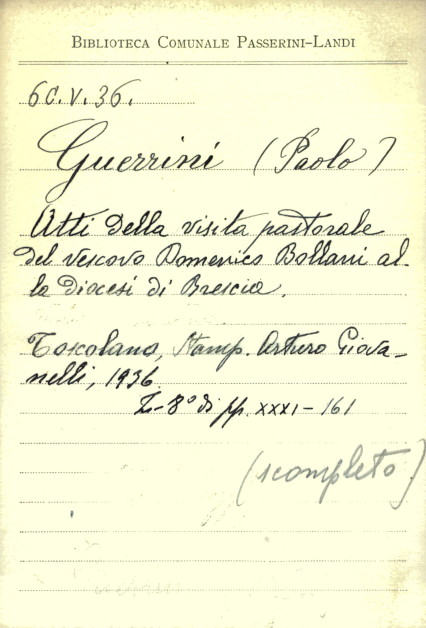 BIBLIOTECA COMUNALE PASSERINI-LANDI
6C.V.36.
Guerrini (Paolo)
Atti della visita pastorale
del vescovo Domenico Bollani al-
la diocesi di Brescia.
Toscolano, Stamp. Arturo Giova-
nelli, 1936
I-8° di pp. XXXI-161
(scompleto)